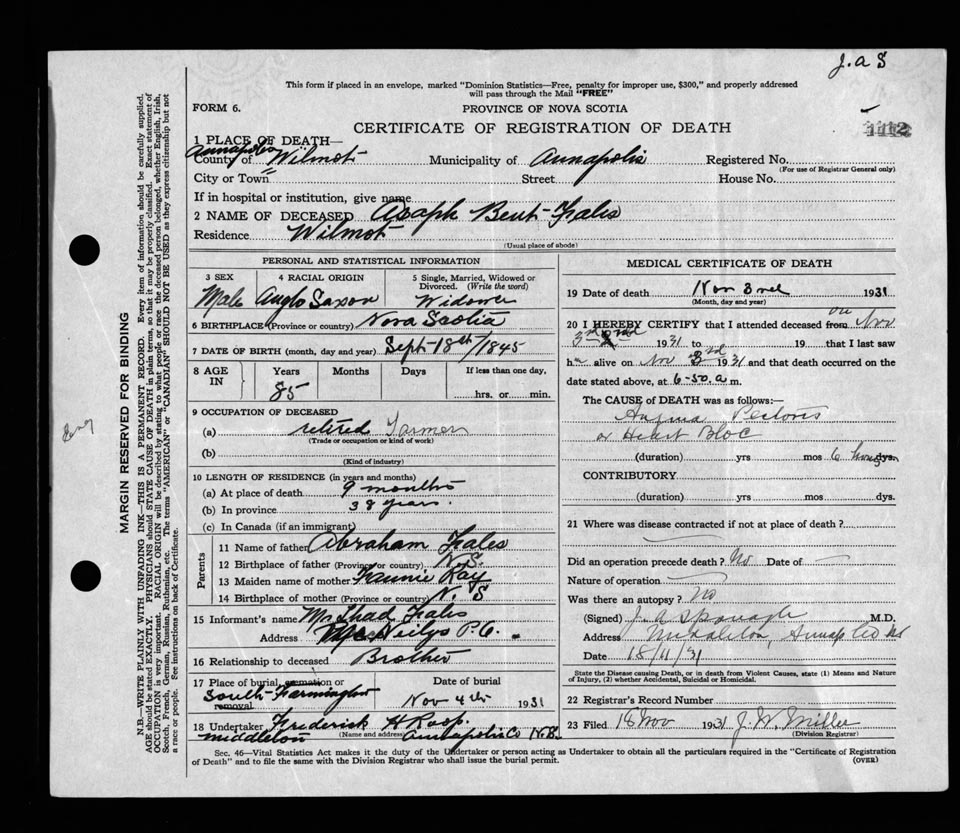 J. a S
This form if placed in an envelope, marked "Dominion Statistics—Free, penalty for improper use, $300," and properly addressed
will pass through the Mail "FREE"
FORM 6.
PROVINCE OF NOVA SCOTIA
1112
CERTIFICATE OF REGISTRATION OF DEATH
1 PLACE OF DEATH—
Annapolis
County of Wilmot Municipality of Annapolis Registered No.
(For use of Registrar General only)
City or Town " Street House No.
If in hospital or institution, give name
2 NAME OF DECEASED Asaph Bent Fales
Residence Wilmot
(Usual place of abode)
PERSONAL AND STATISTICAL INFORMATION
3 SEX 4 RACIAL ORIGIN 5 Single, Married, Widowed or
Divorced. (Write the word)
Male Anglo Saxon Widower
6 BIRTHPLACE (Province or country) Nova Scotia
7 DATE OF BIRTH (month, day and year) Sept 18th/1845
8 AGE IN Years Months Days If less than one day,
85 hrs. or min.
9 OCCUPATION OF DECEASED
(a) retired Farmer
(Trade or occupation or kind of work)
(b)
(Kind of industry)
10 LENGTH OF RESIDENCE (in years and months)
(a) At place of death 9 months
(b) In province 38 years.
(c) In Canada (if an immigrant)
Parents
11 Name of father Abraham Fales
12 Birthplace of father (Province or country) N.S.
13 Maiden name of mother Fannie Ray
14 Birthplace of mother (Province or country) N. S
15 Informant's name Mr Thad Fales
Address McNeilys P.O.
16 Relationship to deceased Brother
17 Place of burial, cremation or Date of burial
removal South Farmington Nov 4th 1931
18 Undertaker Frederick H Roop.
Middleton (Name and address) Annapolis Co N.S.
MEDICAL CERTIFICATE OF DEATH
19 Date of death Nov 3rd 1931
(Month, day and year)
20 I HEREBY CERTIFY that I attended deceased from on Nov
3rd 1931 to 19 that I last saw
h alive on Nov 3rd 1931 and that death occurred on the
date stated above, at 6-50. a m.
The CAUSE of DEATH was as follows:—
Angina Pectoris
or Heart Bloc
(duration) yrs mos 6 hours dys.
CONTRIBUTORY
(duration) yrs. mos. dys.
21 Where was disease contracted if not at place of death?
Did an operation precede death? No Date of
Nature of operation
Was there an autopsy? No
(Signed) J. A Sponagle M.D.
Address Middleton, Annap Co NS
Date 18/11/31
State the Disease causing Death, or in death from Violent Causes, state (1) Means and Nature
of Injury, (2) whether Accidental, Suicidal or Homicidal.
22 Registrar's Record Number
23 Filed 18 Nov 1931 J. W. Miller
(Division Registrar)
Sec. 46—Vital Statistics Act makes it the duty of the Undertaker or person acting as Undertaker to obtain all the particulars required in the "Certificate of Registration
of Death" and to file the same with the Division Registrar who shall issue the burial permit.
(OVER)
MARGIN RESERVED FOR BINDING
N.B.—WRITE PLAINLY WITH UNFADING INK—THIS IS A PERMANENT RECORD. Every item of information should be carefully supplied.
AGE should be stated EXACTLY. PHYSICIANS should STATE CAUSE OF DEATH in plain terms, so that it may be properly classified. Exact statement of
OCCUPATION is very important. RACIAL ORIGIN will be described by stating to what people or race the deceased person belonged, whether English, Irish,
Scotch, French, German, Russian, Ruthenian, etc. The terms "AMERICAN" or "CANADIAN" SHOULD NOT BE USED as they express citizenship but not
a race or people. See instructions on back of Certificate.